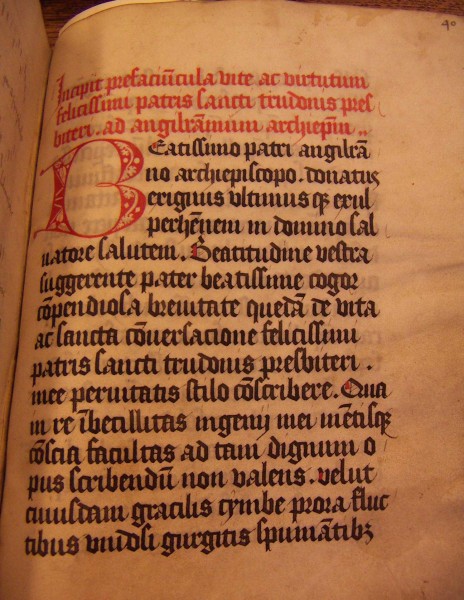 40
Incipit prefaciūcula vite ac virtutum
felicissimi patris sancti trudonis pres
biteri. ad angilrāmum archiepm̄..
BEatissimo patri angilrā
no archiepiscopo. donatus
erigius vltimus qꝫ exul
perhēnem in domino sal
uatore salutem. Beatitudine vestra
suggerente pater beatissime cogor
cōpendiosa breuitate quedā de vita
ac sancta cōuersacione felicissimi
patris sancti trudonis presbiteri.
mee peruitatis stilo cōscribere. Qua
in re ībecillitas ingenij mei mētisqꝫ
cōscia facultas ad tam dignum o
pus scribendū non valens. velut
cuiusdam gracilis cymbe prora fluc
tibus vndosi gurgitis spumātibꝫ